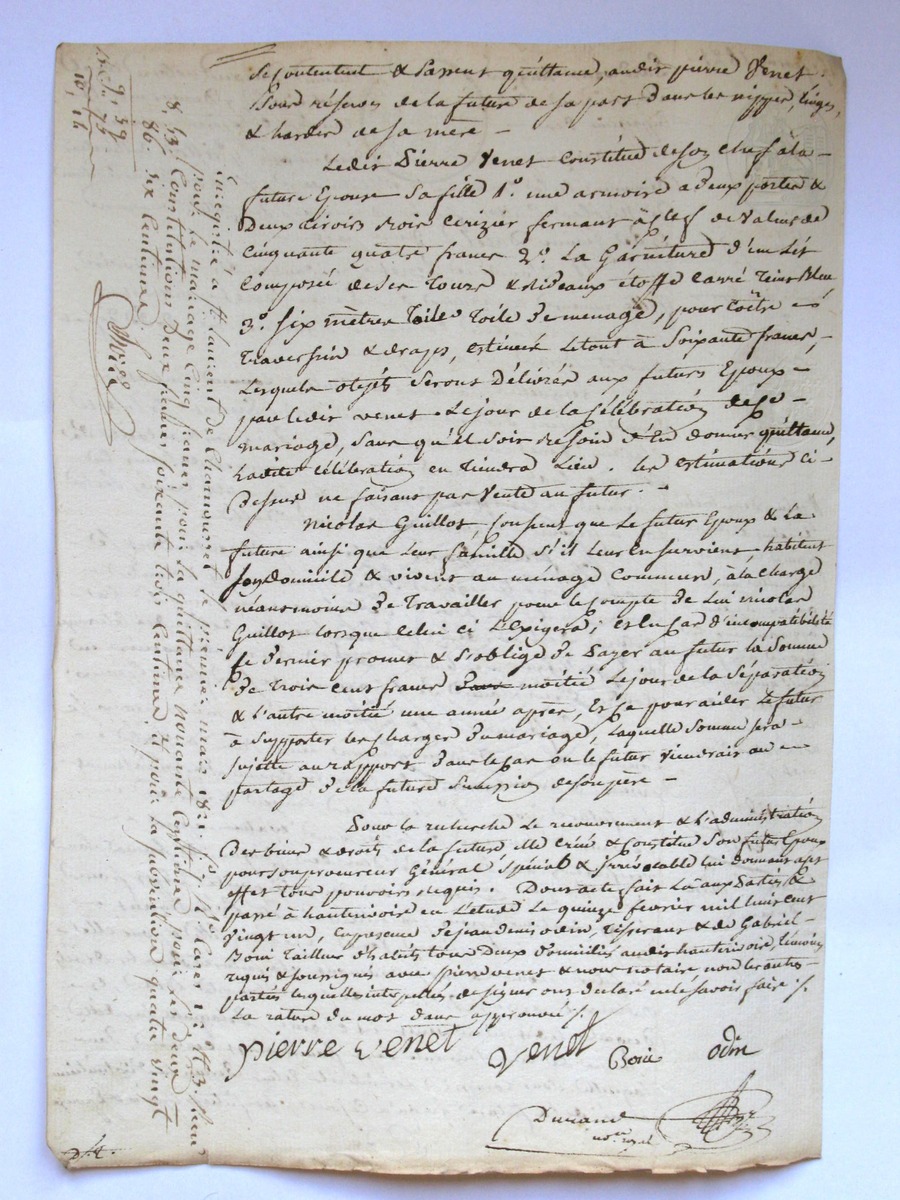 se contentent & passent quittance, audit pierre Venet.
Sous réserves de la future de sa part dans les nippes, linges,
& hardes de sa mère –
Ledit Pierre Venet Constitue de son chef à la
future Epouse sa fille 1°. une armoire a deux portes &
Deux tiroirs bois Cerizier fermant à clef de Valeur de
Cinquante quatre francs 2°. La Garniture d'un Lit
Composée de ses Tours & rideaux étoffe Carré teint Bleu
3°. six mètres Toile de menage, pour Coître
traversin & draps, estimés Le tout à Soixante francs,
Lesquels objets seront Délivrés aux futurs Epoux
par ledit venet Le jour de la Célébration de ce
mariage, sans qu'il soit besoin d'En donner quittance,
ladite Célébration en tiendra Lieu. Les estimations Ci-
Dessus ne faisant pas Vente au futur. –
Nicolas Guillot Consent que Le futur Epoux & La
future ainsi que Leur famille s'il Leur en survient habitent
son domicile & vivent au ménage Commun, à la Charge
néanmoins De Travailler pour le compte De Lui nicolas
Guillot lorsque Celui ci L'Exigera; Et En Cas d'incompatibilité
Ce dernier promet & s'oblige De payer au futur la Somme
De trois cent francs moitié Le jour de la Séparation
& L'autre moitié une année après, Et ce pour aider Le futur
à supporter les charges Du mariage, Laquelle somme sera
sujette au rapport Dans le Cas ou le futur viendrait au
partage De la future Succession de son père –
Pour la recherche Le recouvrement & L'administration
Des biens & droits de la future Elle Créé & Constitue son futur Epoux
pour son procureur Général Spécial & irrévocable lui donnant a cet
effet tous pouvoirs requis. Dont acte fait Lu aux Parties &
passé à hauterivoire en L'étude Le quinze fevrier mil huit cent
vingt un, En presence De jean denis odin, tisserant & de Gabriel
Boni Tailleur D'habits tous Deux Domiciliés audit hauterivoire, témoins
requis & soussignés avec pierre venet & nous notaire non les autres
parties lesquelles interpellées de signer ont déclaré ne le savoir faire ./.
La rature du mot dans approuvée ./.
pierre venet Venet Boni odin
Durand
no.re royal
Enregistré à St Laurent de Chamousset le premier mars 1821. Reçu
pour le mariage Cinq francs, pour la quittance nonante centimes, pour les deux
Constitutions Deux francs soixante trois Centimes, & pour la subvention quatre vingt
six Centimes